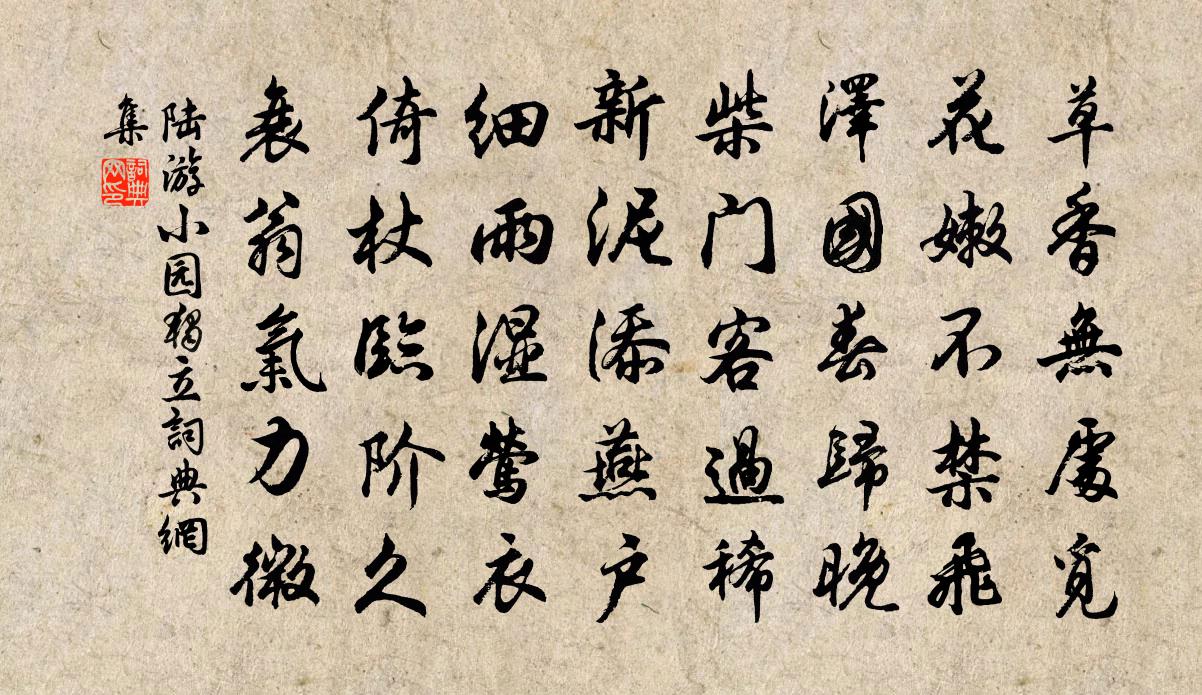 草香無處覓
花嫩不禁飛
澤國春歸晚
柴门客過稀
新泥添燕户
细雨湿莺衣
倚杖臨阶久
衰翁氣力微
陆游小园独立詞典網
集
詞典
网印